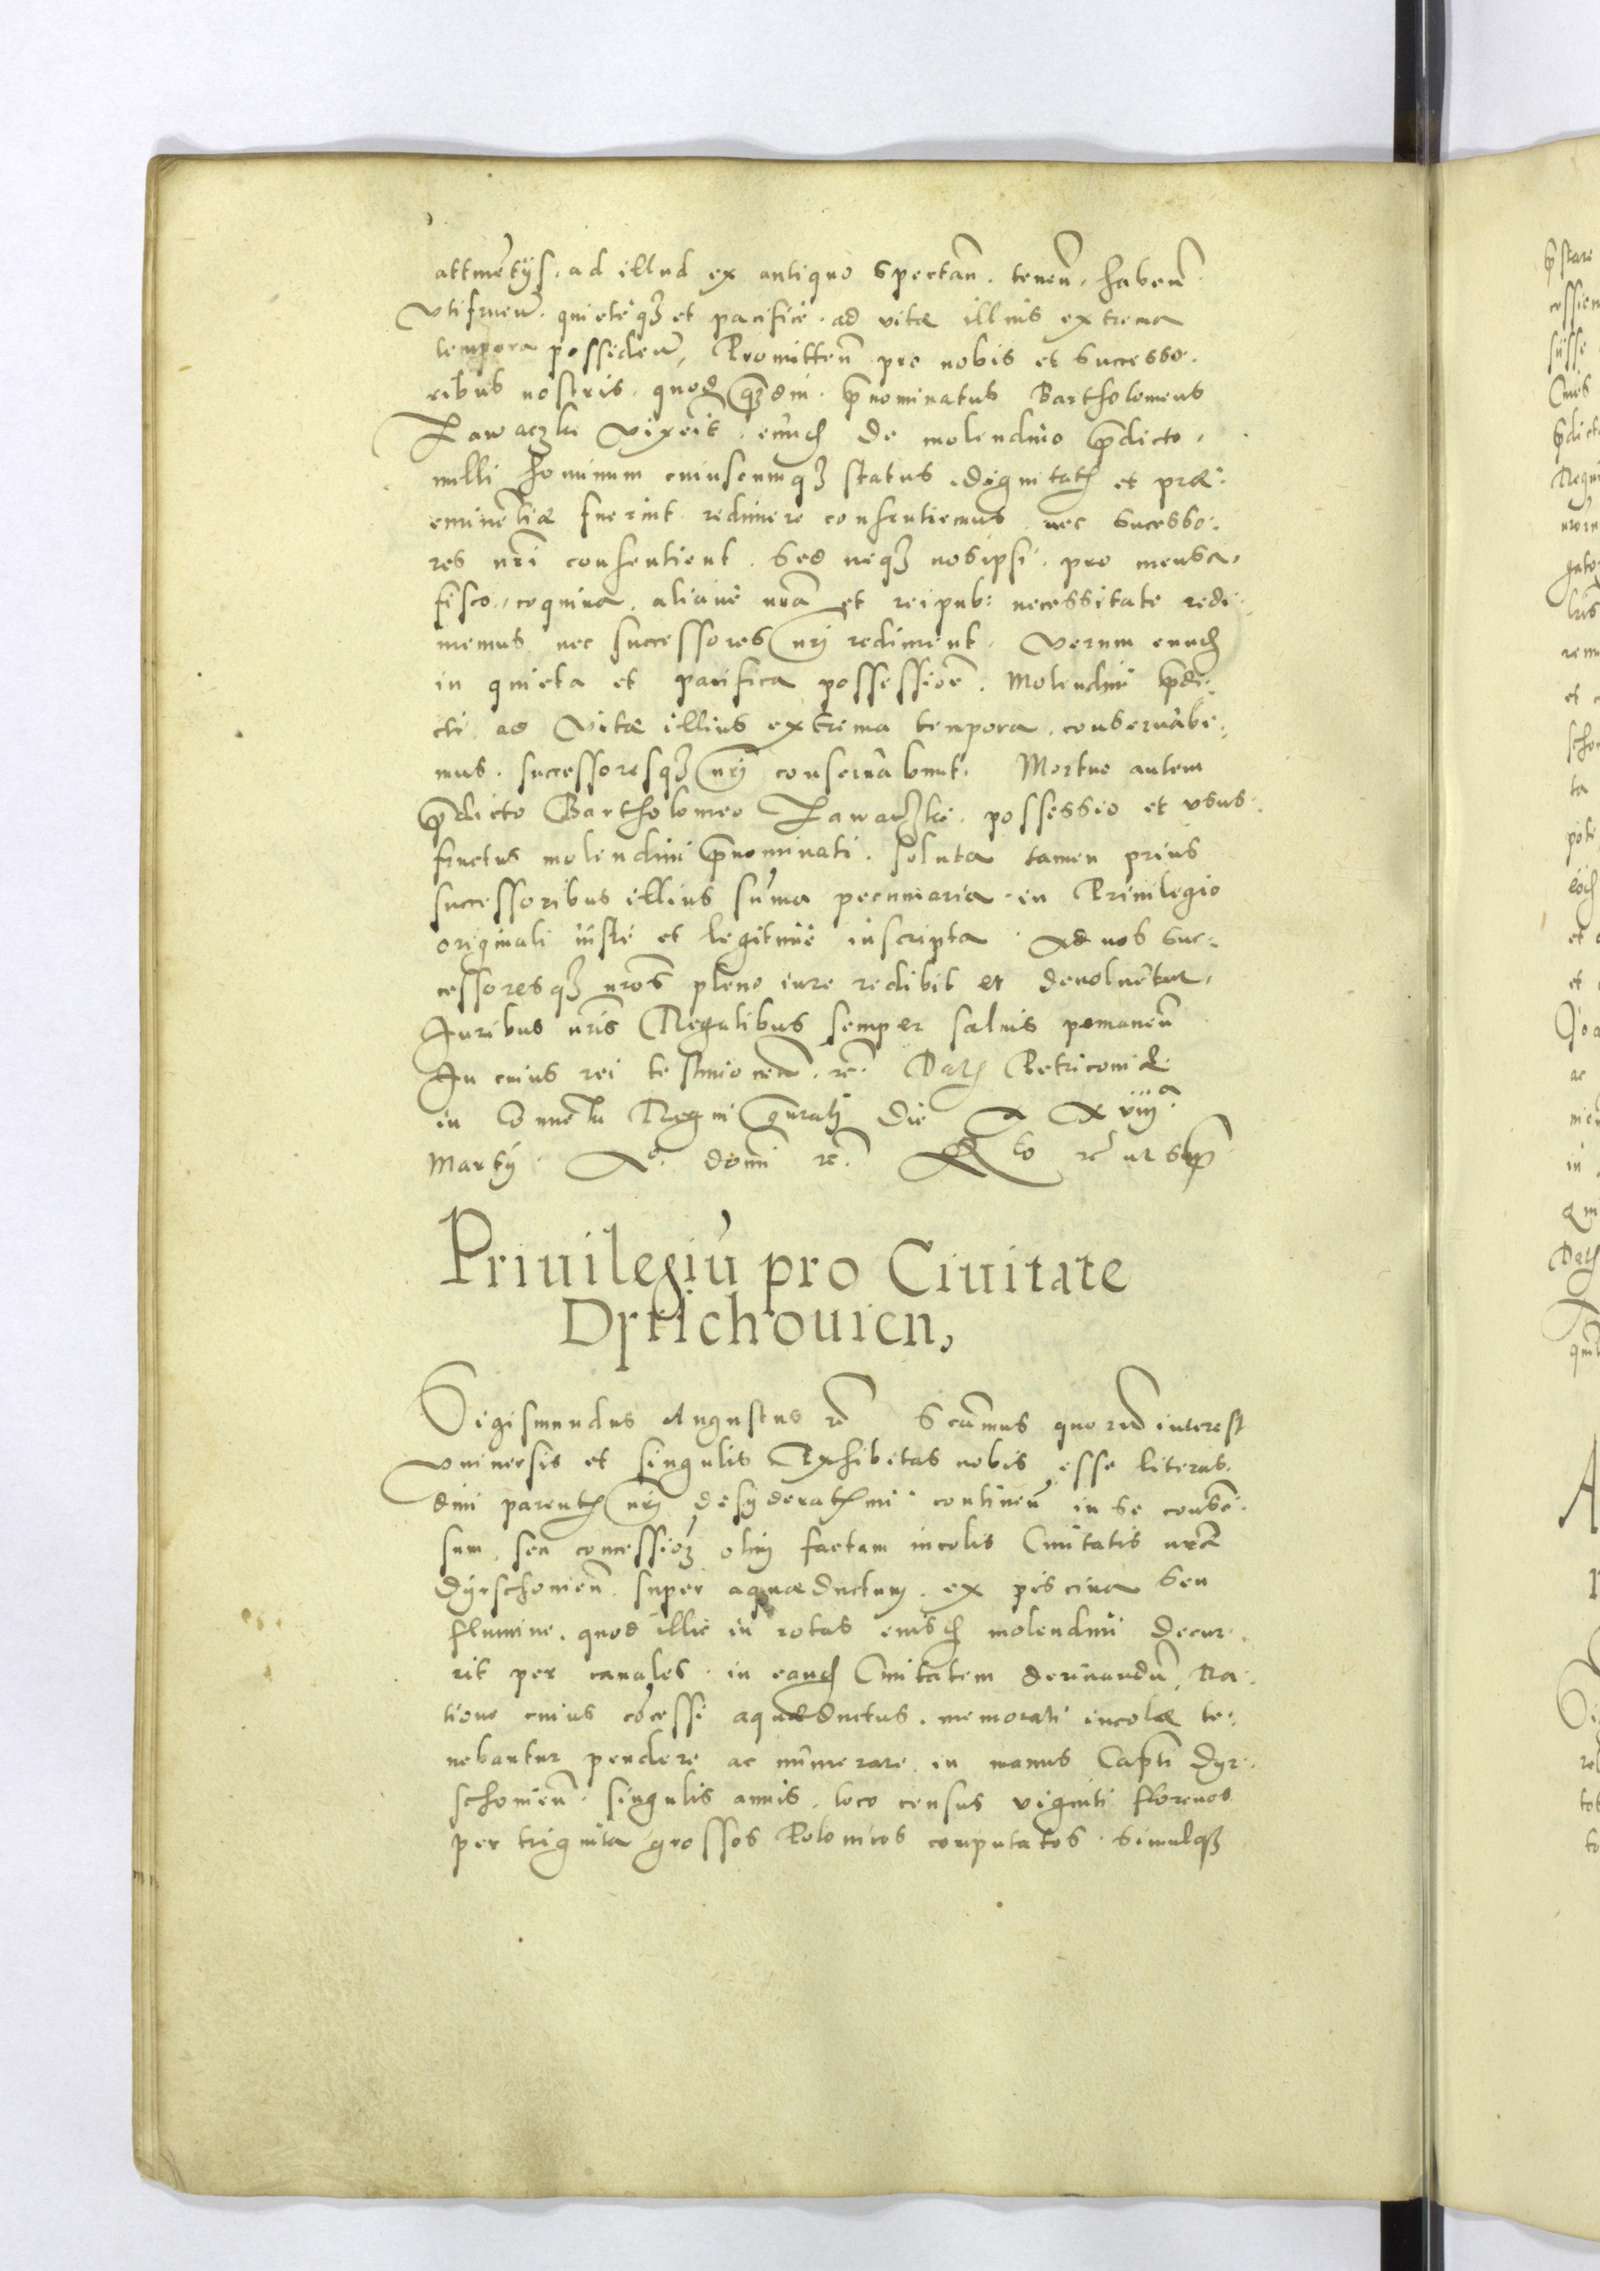 attinētijs, ad illud ex antiquo spectan̄. tenen̄. haben̄
vtifruen̄. quietè q3 et pacificè. ad vitæ illius extrema
tempora possiden̄, Promitten̄ pro nobis et successo-
ribus nostris. quod q̃3diu p̃nominatus Bartholomeus
Lawaczki vixerit. eūd de molendino p̃dicto,
nulli hominum cuiuscunq3 status, dignitat et præ-
eminētiæ fuerint redimere consentiemus nec successo-
res nr̄i consentient. Sed neq3 nosipsi. pro mensa,
fisco, coquina, aliaue nr̄a et reipub: necessitate redi-
memus nec successores nrj rediment. Verum eund
in quieta et pacifica possessiōe. Molendini p̃di-
cti ad vitæ illius extrema tempora conseruabi-
mus. successoresq3 nrj conseruabunt. Mortuo autem
p̃dicto Bartholomeo Lawaczki. possessio et vsus-
fructus molendini p̃nominati. soluta tamen prius
successoribus illius sūma pecuniaria in Priuilegio
originali iustè et legitimè inscripta. Ad nos suc-
cessoresq3 nr̄os pleno iure redibit et deuoluētur,
Juribus nr̄is Regalibus semper saluis pemanen̄
In cuius rei testimo re. Dat Petricouiæ
in Conuētu Regni gn̄rali Die xviijᵃ
Martij. Aº domi re. ut sup
Priuilegiū pro Ciuitate
Dyrschouien,
Sigismundus Augustus re Sc̄amus quorū interest
vniuersis et singulis Exhibitas nobis esse literas.
diui parent nrj desyderatmi continen̄ in se consē-
sum, seu concessioē olim factam incolis Ciuitatis nr̄æ
Dyrschouien̄. super aquæductum. ex piscina seu
flumine. quod illic in rotas eiusd molendini decur-
rit per canales. in eand Ciuitatem deriuandū, Ra-
tione cuius cōcessi aquæductus. memorati incolæ te-
nebantur pendere ac numerare in manus Capti Dyr-
schouien̄. singulis annis. loco census viginti florenos
per triginta grossos Polonicos computatos. simulq3